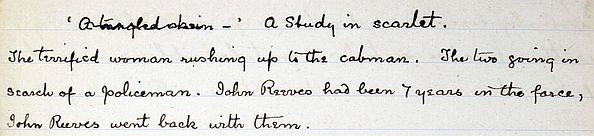 'A tangled skein -' A Study in scarlet.
The terrified woman rushing up to the cabman. The two going in
search of a policeman. John Reeves had been 7 years in the force,
John Reeves went back with them.